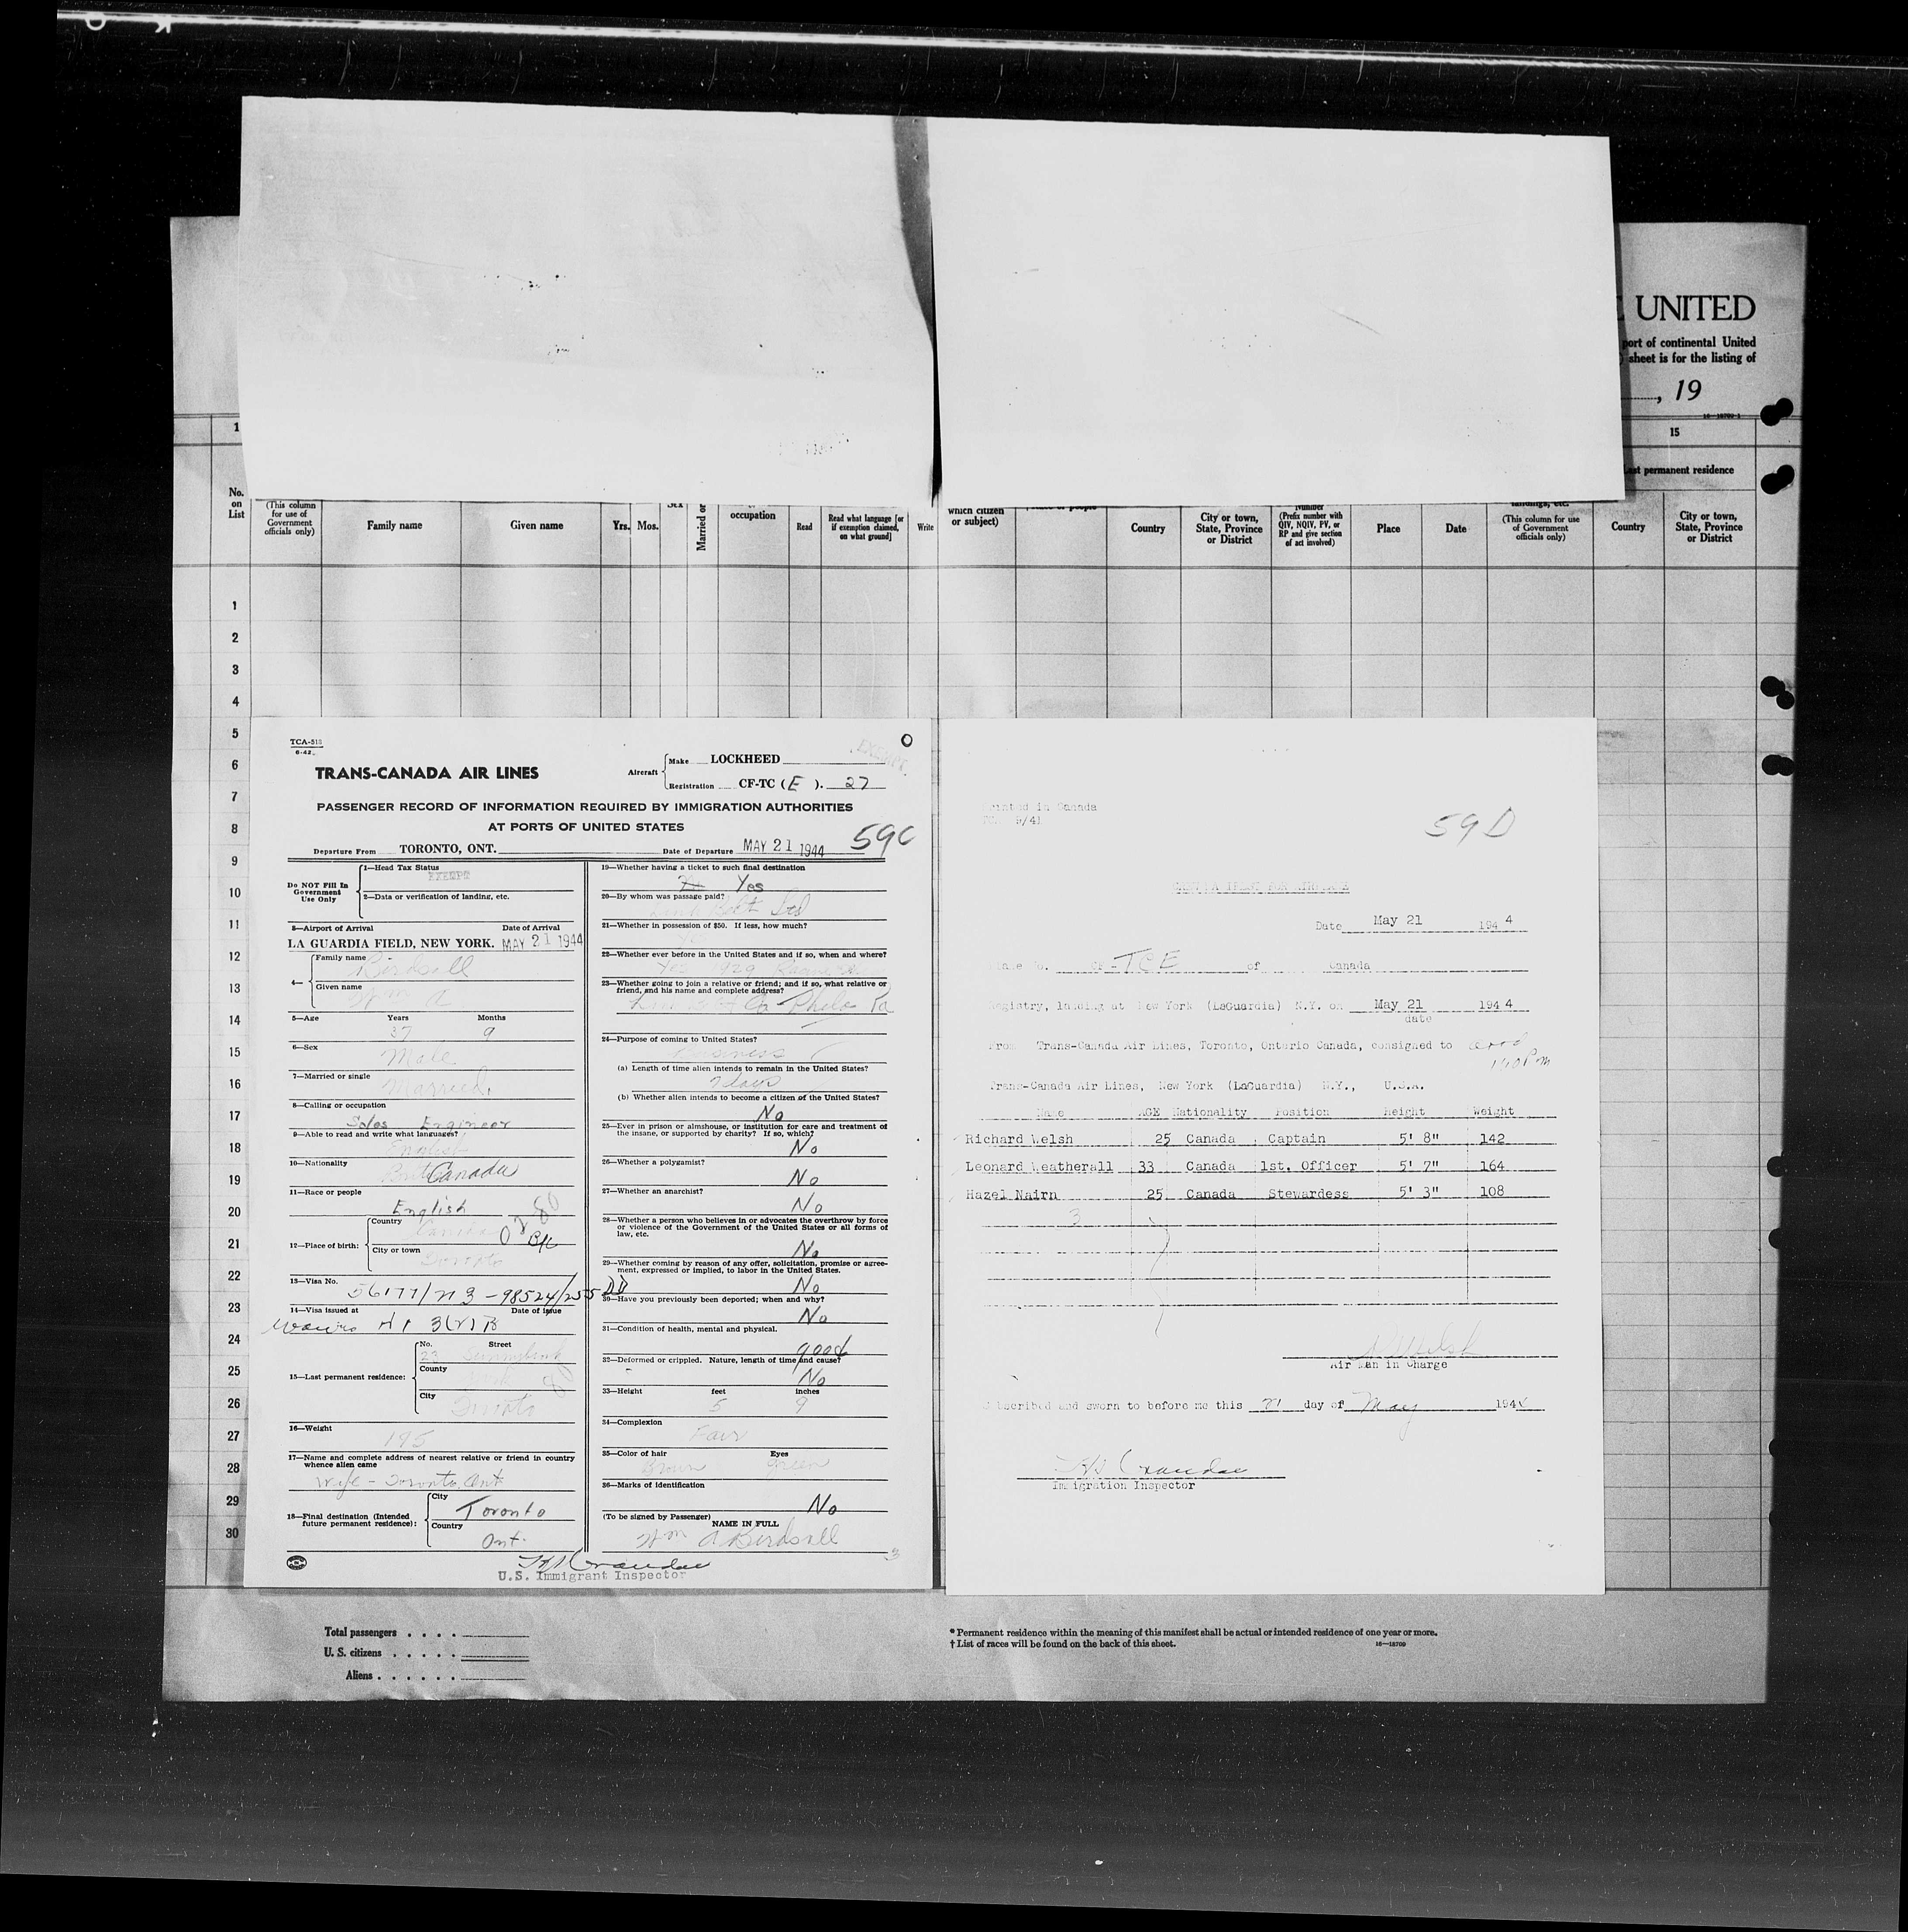 E UNITED
port of continental United
) sheet is for the listing of
, 19
16—18709-1
1
15
Last permanent residence
No. on List
(This column for use of Government officials only)
Family name
Given name
Yrs.
Mos.
Sex
Married or
occupation
Read
Read what language [or if exemption claimed, on what ground]
Write
which citizen or subject)
Country
City or town, State, Province or District
Number (Prefix number with QIV, NQIV, PV, or RP and give section of act involved)
Place
Date
landings, etc.
(This column for use of Government officials only)
Country
City or town, State, Province or District
1
2
3
4
5
6
7
8
9
10
11
12
13
14
15
16
17
18
19
20
21
22
23
24
25
26
27
28
29
30
TCA-513
6-42
EXEMPT
TRANS-CANADA AIR LINES
Aircraft
Make LOCKHEED
Registration CF-TC (E). 27
PASSENGER RECORD OF INFORMATION REQUIRED BY IMMIGRATION AUTHORITIES
AT PORTS OF UNITED STATES
59C
Departure From TORONTO, ONT.
Date of Departure MAY 21 1944
Do NOT Fill In Government Use Only
1—Head Tax Status
EXEMPT
2—Data or verification of landing, etc.
3—Airport of Arrival
Date of Arrival
LA GUARDIA FIELD, NEW YORK. MAY 21 1944
4—
Family name
Birdsall
Given name
Wm A
5—Age
Years
Months
37
9
6—Sex
Male
7—Married or single
Married
8—Calling or occupation
Sales Engineer
9—Able to read and write what languages?
English
10—Nationality
Brit Canada
11—Race or people
English
12—Place of birth:
Country
Canada
City or town
Toronto
13—Visa No.
56177/
-98524/255 DD
14—Visa issued at
Date of issue
3(2) B
15—Last permanent residence:
No.
Street
23 Sunnybank
County
York
City
Toronto
16—Weight
195
17—Name and complete address of nearest relative or friend in country whence alien came
Wife - Toronto, Ont
18—Final destination (Intended future permanent residence):
City
Toronto
Country
Ont.
19—Whether having a ticket to such final destination
Yes
20—By whom was passage paid?
Link Belt Ltd
21—Whether in possession of $50. If less, how much?
22—Whether ever before in the United States and if so, when and where?
Yes 1929
23—Whether going to join a relative or friend; and if so, what relative or friend, and his name and complete address?
Link Belt Co Phila Pa
24—Purpose of coming to United States?
Business
(a) Length of time alien intends to remain in the United States?
7 days
(b) Whether alien intends to become a citizen of the United States?
No
25—Ever in prison or almshouse, or institution for care and treatment of the insane, or supported by charity? If so, which?
No
26—Whether a polygamist?
No
27—Whether an anarchist?
No
28—Whether a person who believes in or advocates the overthrow by force or violence of the Government of the United States or all forms of law, etc.
No
29—Whether coming by reason of any offer, solicitation, promise or agreement, expressed or implied, to labor in the United States.
No
30—Have you previously been deported; when and why?
No
31—Condition of health, mental and physical.
good
32—Deformed or crippled. Nature, length of time and cause?
No
33—Height
feet
inches
5
9
34—Complexion
Fair
35—Color of hair
Eyes
Brown
Green
36—Marks of identification
No
(To be signed by Passenger)
NAME IN FULL
Wm A Birdsall
3
U.S. Immigrant Inspector
Printed in Canada
9/41
59D
Date May 21 1944
CF-TCE of Canada
Registry, landing at New York (LaGuardia) N.Y. on May 21 1944
date
From Trans-Canada Air Lines, Toronto, Ontario Canada, consigned to
Trans-Canada Air Lines, New York (LaGuardia) N.Y., U.S.A.
Name AGE Nationality Position Height Weight
Richard Welsh 25 Canada Captain 5' 8" 142
Leonard Weatherall 33 Canada 1st. Officer 5' 7" 164
Hazel Nairn 25 Canada Stewardess 5' 3" 108
3
R Welsh
Air Man in Charge
Subscribed and sworn to before me this 21 day of May 1944
Immigration Inspector
Total passengers . . . .
U. S. citizens . . . . .
Aliens . . . . . .
* Permanent residence within the meaning of this manifest shall be actual or intended residence of one year or more.
† List of races will be found on the back of this sheet.
16—18709